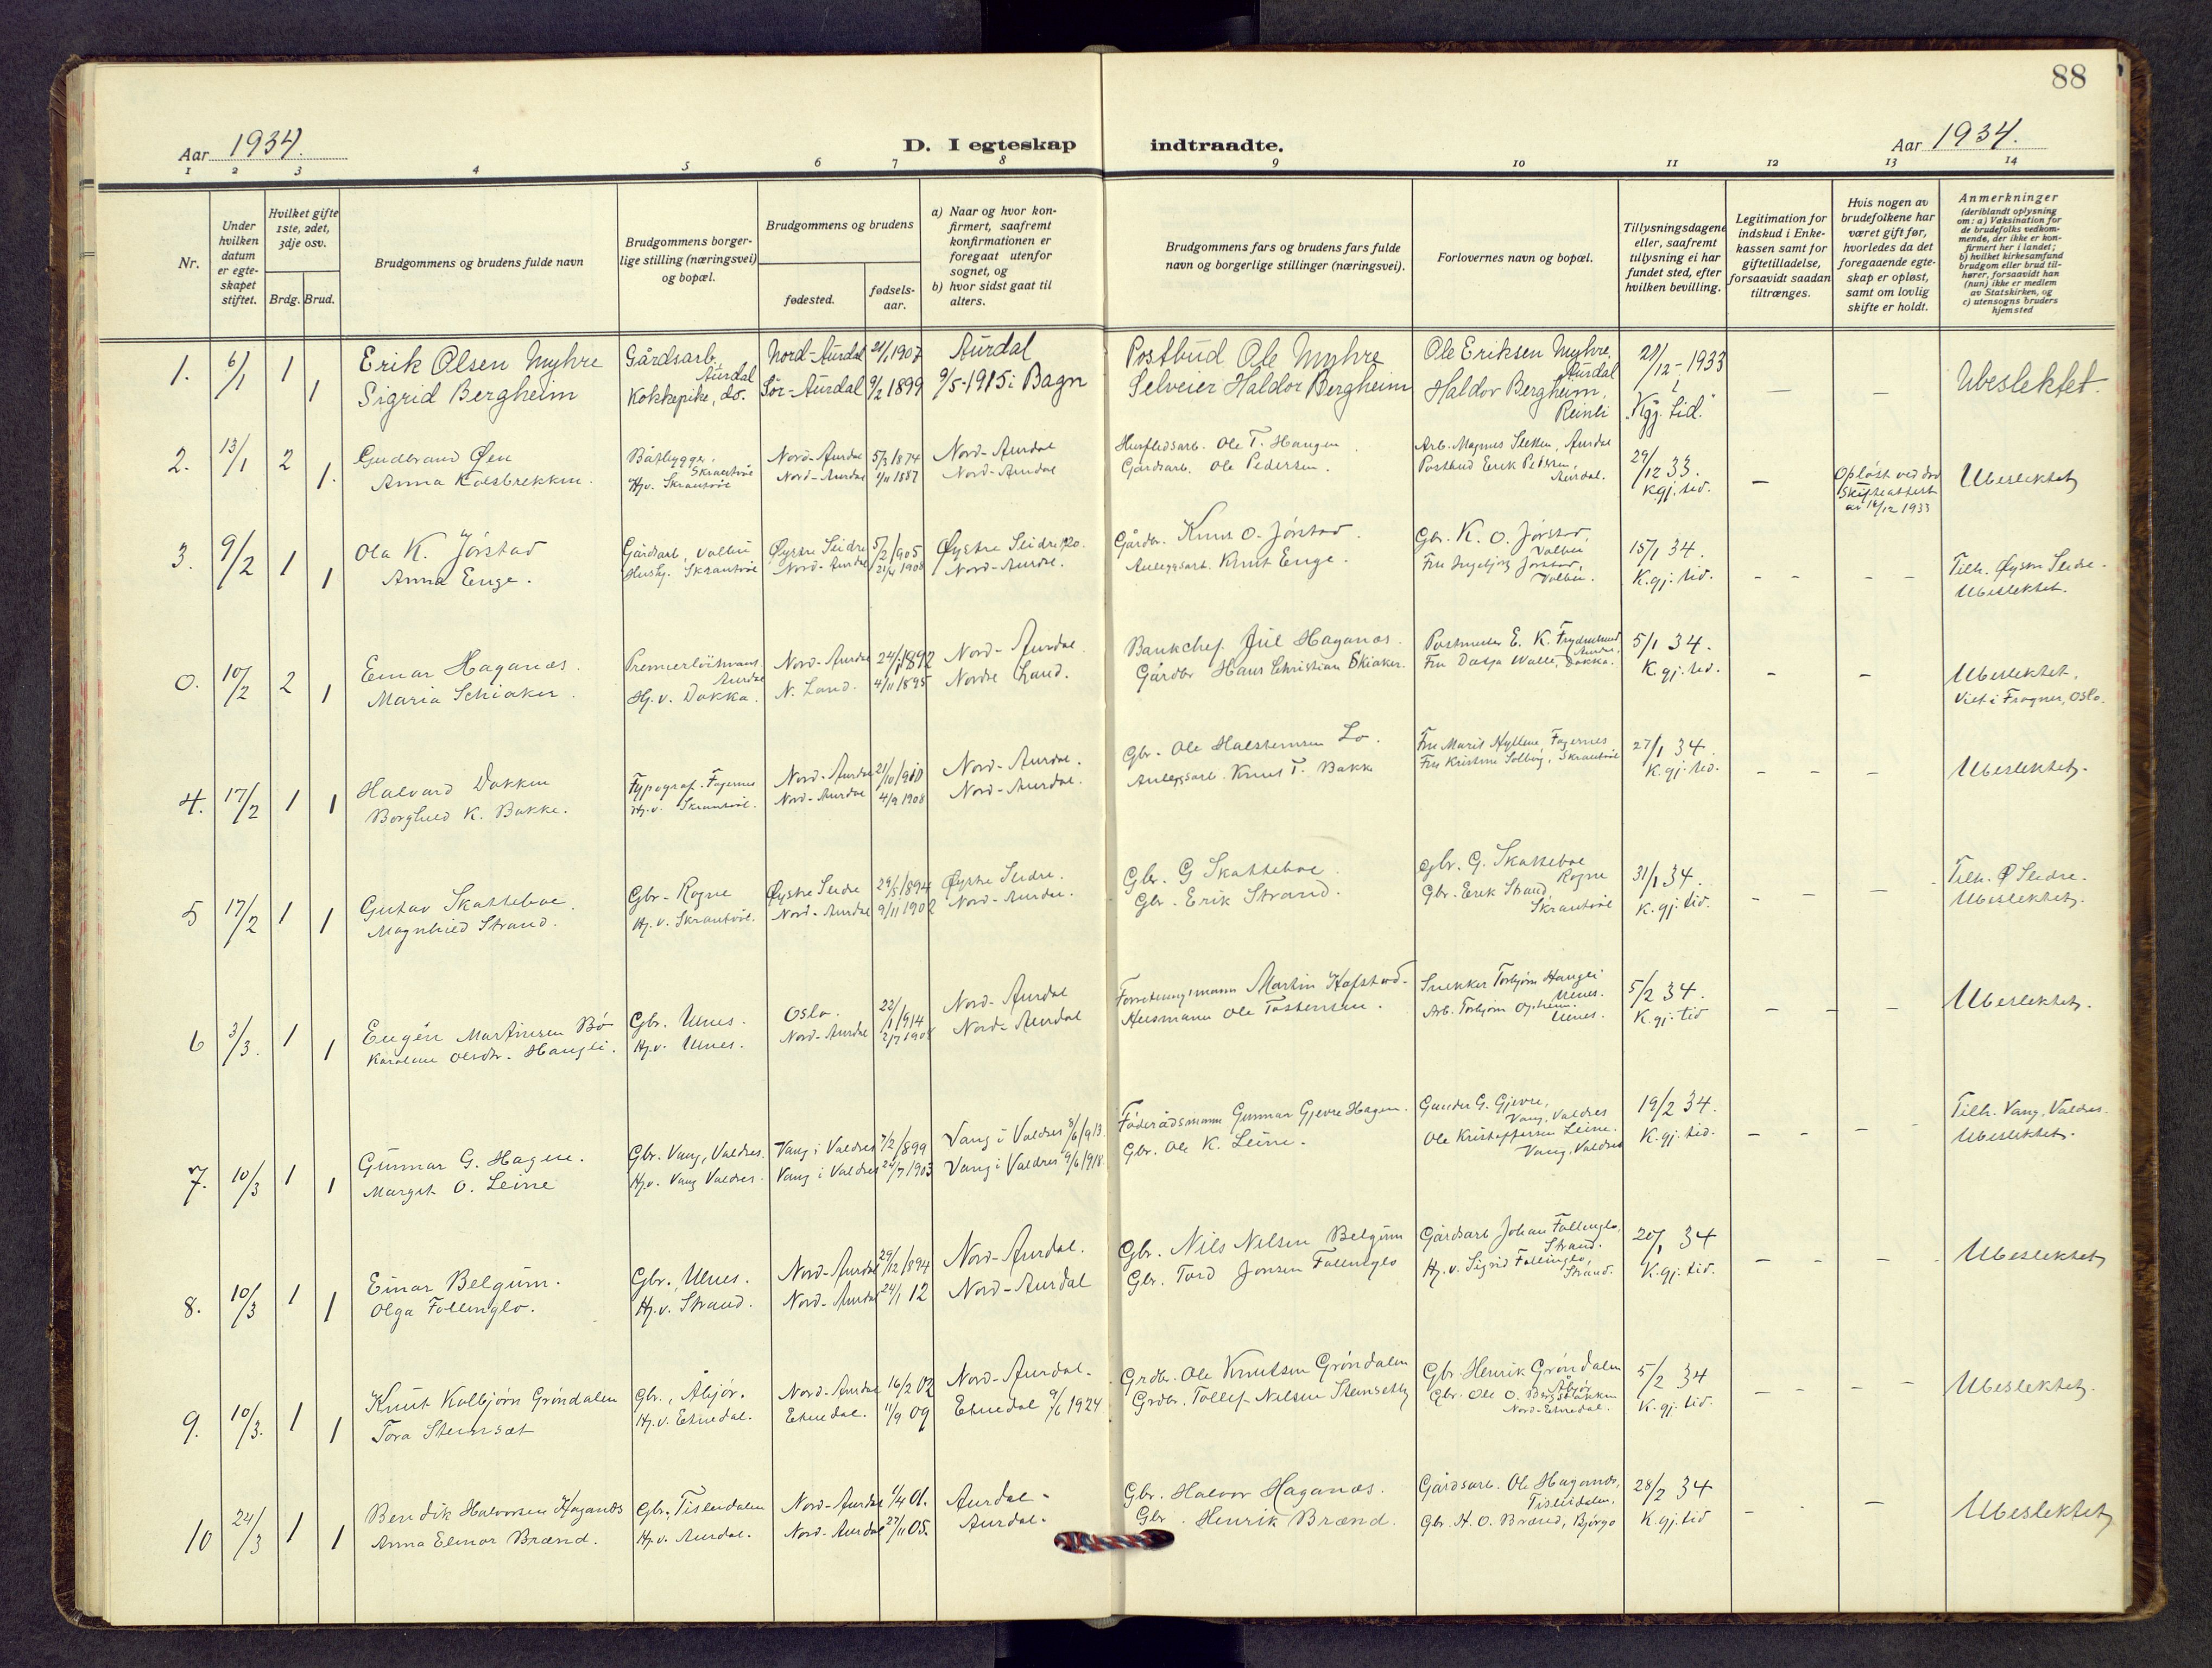 88
Aar 1934.
D. I egteskap indtraadte.
Aar 1934.
1 2 3 4 5 6 7 8 9 10 11 12 13 14
Nr.
Under hvilken datum er egteskapet stiftet.
Hvilket gifte 1ste, 2det, 3dje osv.
Brdg. Brud.
Brudgommens og brudens fulde navn
Brudgommens borgerlige stilling (næringsvei) og bopæl.
Brudgommens og brudens
fødested.
fødselsaar.
a) Naar og hvor konfirmert, saafremt konfirmationen er foregaat utenfor sognet, og
b) hvor sidst gaat til alters.
Brudgommens fars og brudens fars fulde navn og borgerlige stillinger (næringsvei).
Forlovernes navn og bopæl.
Tillysningsdagene eller, saafremt tillysning ei har fundet sted, efter hvilken bevilling.
Legitimation for indskud i Enkekassen samt for giftetilladelse, forsaavidt saadan tiltrænges.
Hvis nogen av brudefolkene har været gift før, hvorledes da det foregaaende egteskap er opløst, samt om lovlig skifte er holdt.
Anmerkninger (deriblandt oplysning om: a) Vaksination for de brudefolks vedkommende, der ikke er konfirmert her i landet; b) hvilket kirkesamfund brudgom eller brud tilhører, forsaavidt han (hun) ikke er medlem av Statskirken, og c) utensogns bruders hjemsted
1. 6/1 1 Erik Olsen Myhre Gårdsarb. Aurdal Nord-Aurdal 21/1 1907 Aurdal Postbud Ole Myhre Ole Eriksen Myhre, Aurdal 21/12-1933 i
1 Sigrid Bergheim Kokkepike, do. Sør-Aurdal 9/2 1899 9/5-1915 i Bagn Selveier Haldor Bergheim Haldor Bergheim, Reinli "Kgj. tid." — — Ubeslektet.
2. 13/1 2 Gudbrand Øen Båtbygger, Skrautvål Nord-Aurdal 5/3 1874 Nord-Aurdal Husflidsarb. Ole T. Haugen Arb. Magnus Sletten, Aurdal 29/12 33.
1. Anna Kolsbrekken. Hj.v. Skrautvål Nord-Aurdal 1/11 1887 Nord-Aurdal Gårdsarb. Ole Pedersen. Postbud Erik Pedersen, Aurdal. Kgj. tid. — Opløst ved død Skifteattest av 14/12 1933 Ubeslektet
3. 9/2 1 Ola K. Jørstad Gårdsarb. Volbu Øystre Slidre 5/2 1905 Øystre Slidre 1920. Gårdbr. Knut O. Jørstad. Gbr. K. O. Jørstad, Volbu 15/1 34.
1 Anna Enge. Hush. Skrautvål Nord-Aurdal 21/4 1908 Nord-Aurdal. Anleggsarb. Knut Enge. Fru Ingebjørg Jørstad, Volbu. K.gj. tid. - - - - Tilh. Øystre Slidre. Ubeslektet.
0. 10/2 2 Einar Haganæs. Premierløitnant Aurdal Nord-Aurdal 24/1 1892 Nord-Aurdal. Bankchef Jul Haganæs. Postmester E. K. Frydenlund Aurdal. 5/1 34.
1 Maria Schiaker. Hj.v. Dokka. N. Land. 4/11 1895 Nordre Land. Gårdbr Hans Christian Skiaker. Fru Dagja Walle, Dokka. K.gj. tid. - - Ubeslektet. Viet i Frogner, Oslo.
4. 17/2 1 Halvard Dokken Typograf. Fagernes Nord-Aurdal 21/10 1910 Nord-Aurdal. Gbr. Ole Halstensen Lo. Fru Marit Hyllene, Fagernes 27/1 34.
1 Borghild K. Bakke. Hj.v. Skrautvål. Nord-Aurdal 4/9 1908 Nord-Aurdal. Anleggsarb. Knut T. Bakke Fru Kristine Solberg, Skrautvål K.gj. tid. - - - Ubeslektet.
5 17/2 1 Gustav Skatteboe. Gbr- Rogne Øystre Slidre 29/5 1894 Øystre Slidre. Gbr. G Skatteboe Gbr. G. Skatteboe Rogne 31/1 34.
1 Magnhild Strand. Hj.v. Skrautvål. Nord-Aurdal 9/11 1902 Nord-Aurdal. Gbr. Erik Strand. Gbr. Erik Strand, Skrautvål K.gj. tid. - - - Tilh. Ø Slidre. Ubeslektet.
6 3/3. 1 Eugén Martinsen Bø Gbr. Ulnes. Oslo. 22/1 1914 Nord-Aurdal Forretningsmann Martin Hafstad. Snekker Torbjørn Haugli Ulnes. 5/2 34.
1 Karoline Olsdtr. Haugli. Hj.v. Ulnes. Nord-Aurdal 2/7 1908 Nord-Aurdal Husmann Ole Tostensen. Arb. Torbjørn Opheim Ulnes. K.gj. tid - - - Ubeslektet.
7. 10/3 1 Gunnar G. Hagen. Gbr. Vang, Valdres. Vang i Valdres 7/2 1899 Vang i Valdres 8/6 1913. Føderådsmann Gunnar Gjevre Hagen. Gunder G. Gjevre, Vang, Valdres 19/2 34.
1 Margit O. Leine Hj.v. Vang Valdres. Vang i Valdres 24/7 1903 Vang i Valdres 9/6 1918 Gbr. Ole K. Leine. Ole Kristoffersen Leine. Vang. Valdres K.gj. tid. - - - - Tilh. Vang, Valdres. Ubeslektet.
8. 10/3 1 Einar Belgum. Gbr. Ulnes. Nord-Aurdal 29/12 1894 Nord-Aurdal. Gbr. Nils Nilsen Belgum Gårdsarb Johan Follinglo, Strand. 20/1 34
1 Olga Follinglo. Hj.v. Strand. Nord-Aurdal 24/1 12 Nord-Aurdal Gbr. Tord Jonsen Follinglo Hj.v. Sigrid Follinglo, Strand. K.gj. tid. - - - - Ubeslektet
9. 10/3. 1 Knut Kolbjørn Grøndalen Gbr., Åbjør. Nord-Aurdal 16/2 02 Nord-Aurdal. Grdbr. Ole Knutsen Grøndalen Gbr. Henrik Grøndalen Åbjør 5/2 34
1 Tora Steinsæt Hj.v. Etnedal. Etnedal. 11/9 09 Etnedal 9/6 1924 Grdbr. Tollef Nilsen Steinsett Gbr. Ole O. Bergsbakken Nord-Etnedal. K.gj. tid. - - - - Ubeslektet.
10 24/3 1 Bendik Halvorsen Haganæs Gbr. Tisleidalen Nord-Aurdal 1/4 01. Aurdal. Gbr. Halvor Haganæs. Gårdsarb. Ole Haganæs, Tisleidalen. 28/2 34
1 Anna Elinor Brænd. Hj.v. Aurdal. Nord-Aurdal 27/11 05. Aurdal. Gbr. Henrik Brænd. Gbr. H. O. Brænd, Bjørgo K.gj. tid - - - Ubeslektet